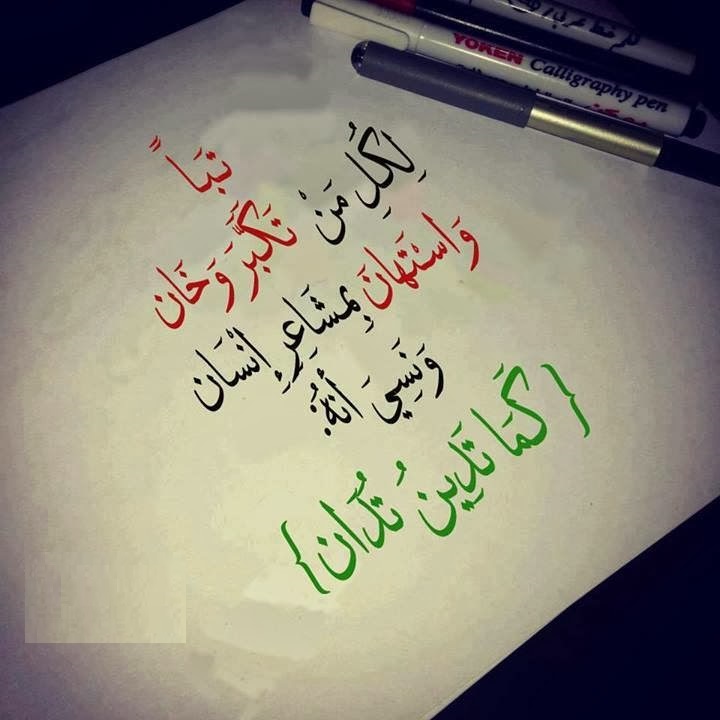 تَباً
لِكُلِ مَنْ تَكَبَّرَ وَخَان
وَاسْتَهانَ بِمشَاعِرِ إنْسَان
وَنَسِيَ أنَهُ:
{كَمَا تَدِينُ تُدَان}
YOKEN Calligraphy pen